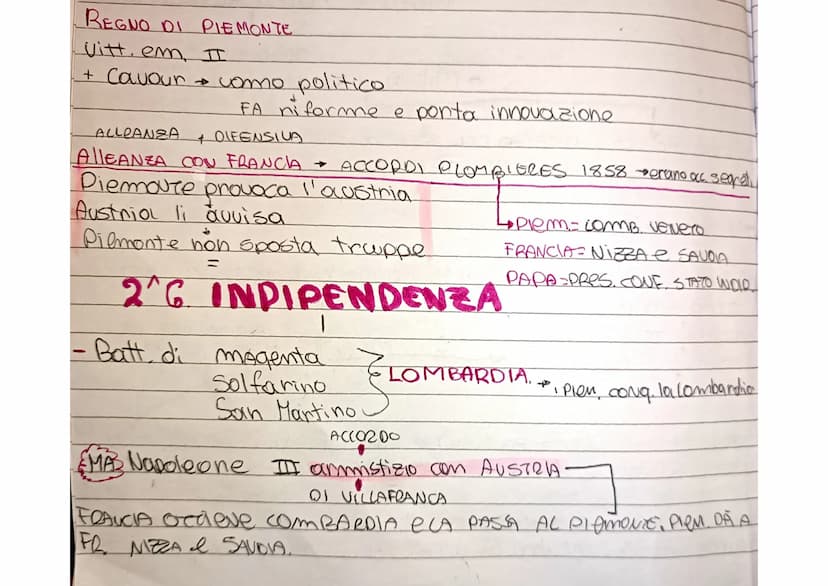 REGNO DI PIEMONTE
Vitt. em. II
+ Cavour → uomo politico
FA riforme e porta innovazione
ALLEANZA + DIFENSIVA
ALLEANZA CON FRANCIA → ACCORDI PLOMBIERES 1858 → erano acc. segreti
Piemonte provoca l'austria
Austria li avvisa
→ PIEM = LOMB. VENETO
Piemonte non sposta truppe
FRANCIA = NIZZA e SAVOIA
=
PAPA = PRES. CONF. STATO
2^G INDIPENDENZA
- Batt. di magenta
Solfarino
San Martino
LOMBARDIA. → PIEM. conq. la lombardia
ACCORDO
MA Napoleone III armistizio con AUSTRIA
DI VILLAFRANCA
FRANCIA OTTIENE LOMBARDIA E LA PASSA AL PIEMONTE. PIEM. DÀ A
FR. NIZZA e SAVOIA.